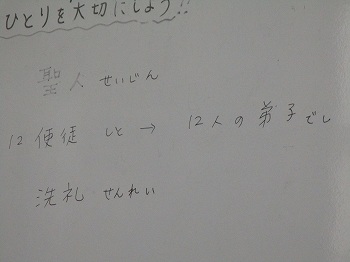 ひとりを大切にしよう!!
聖人 せいじん
12使徒 しと → 12人の弟子でし
洗礼 せんれい